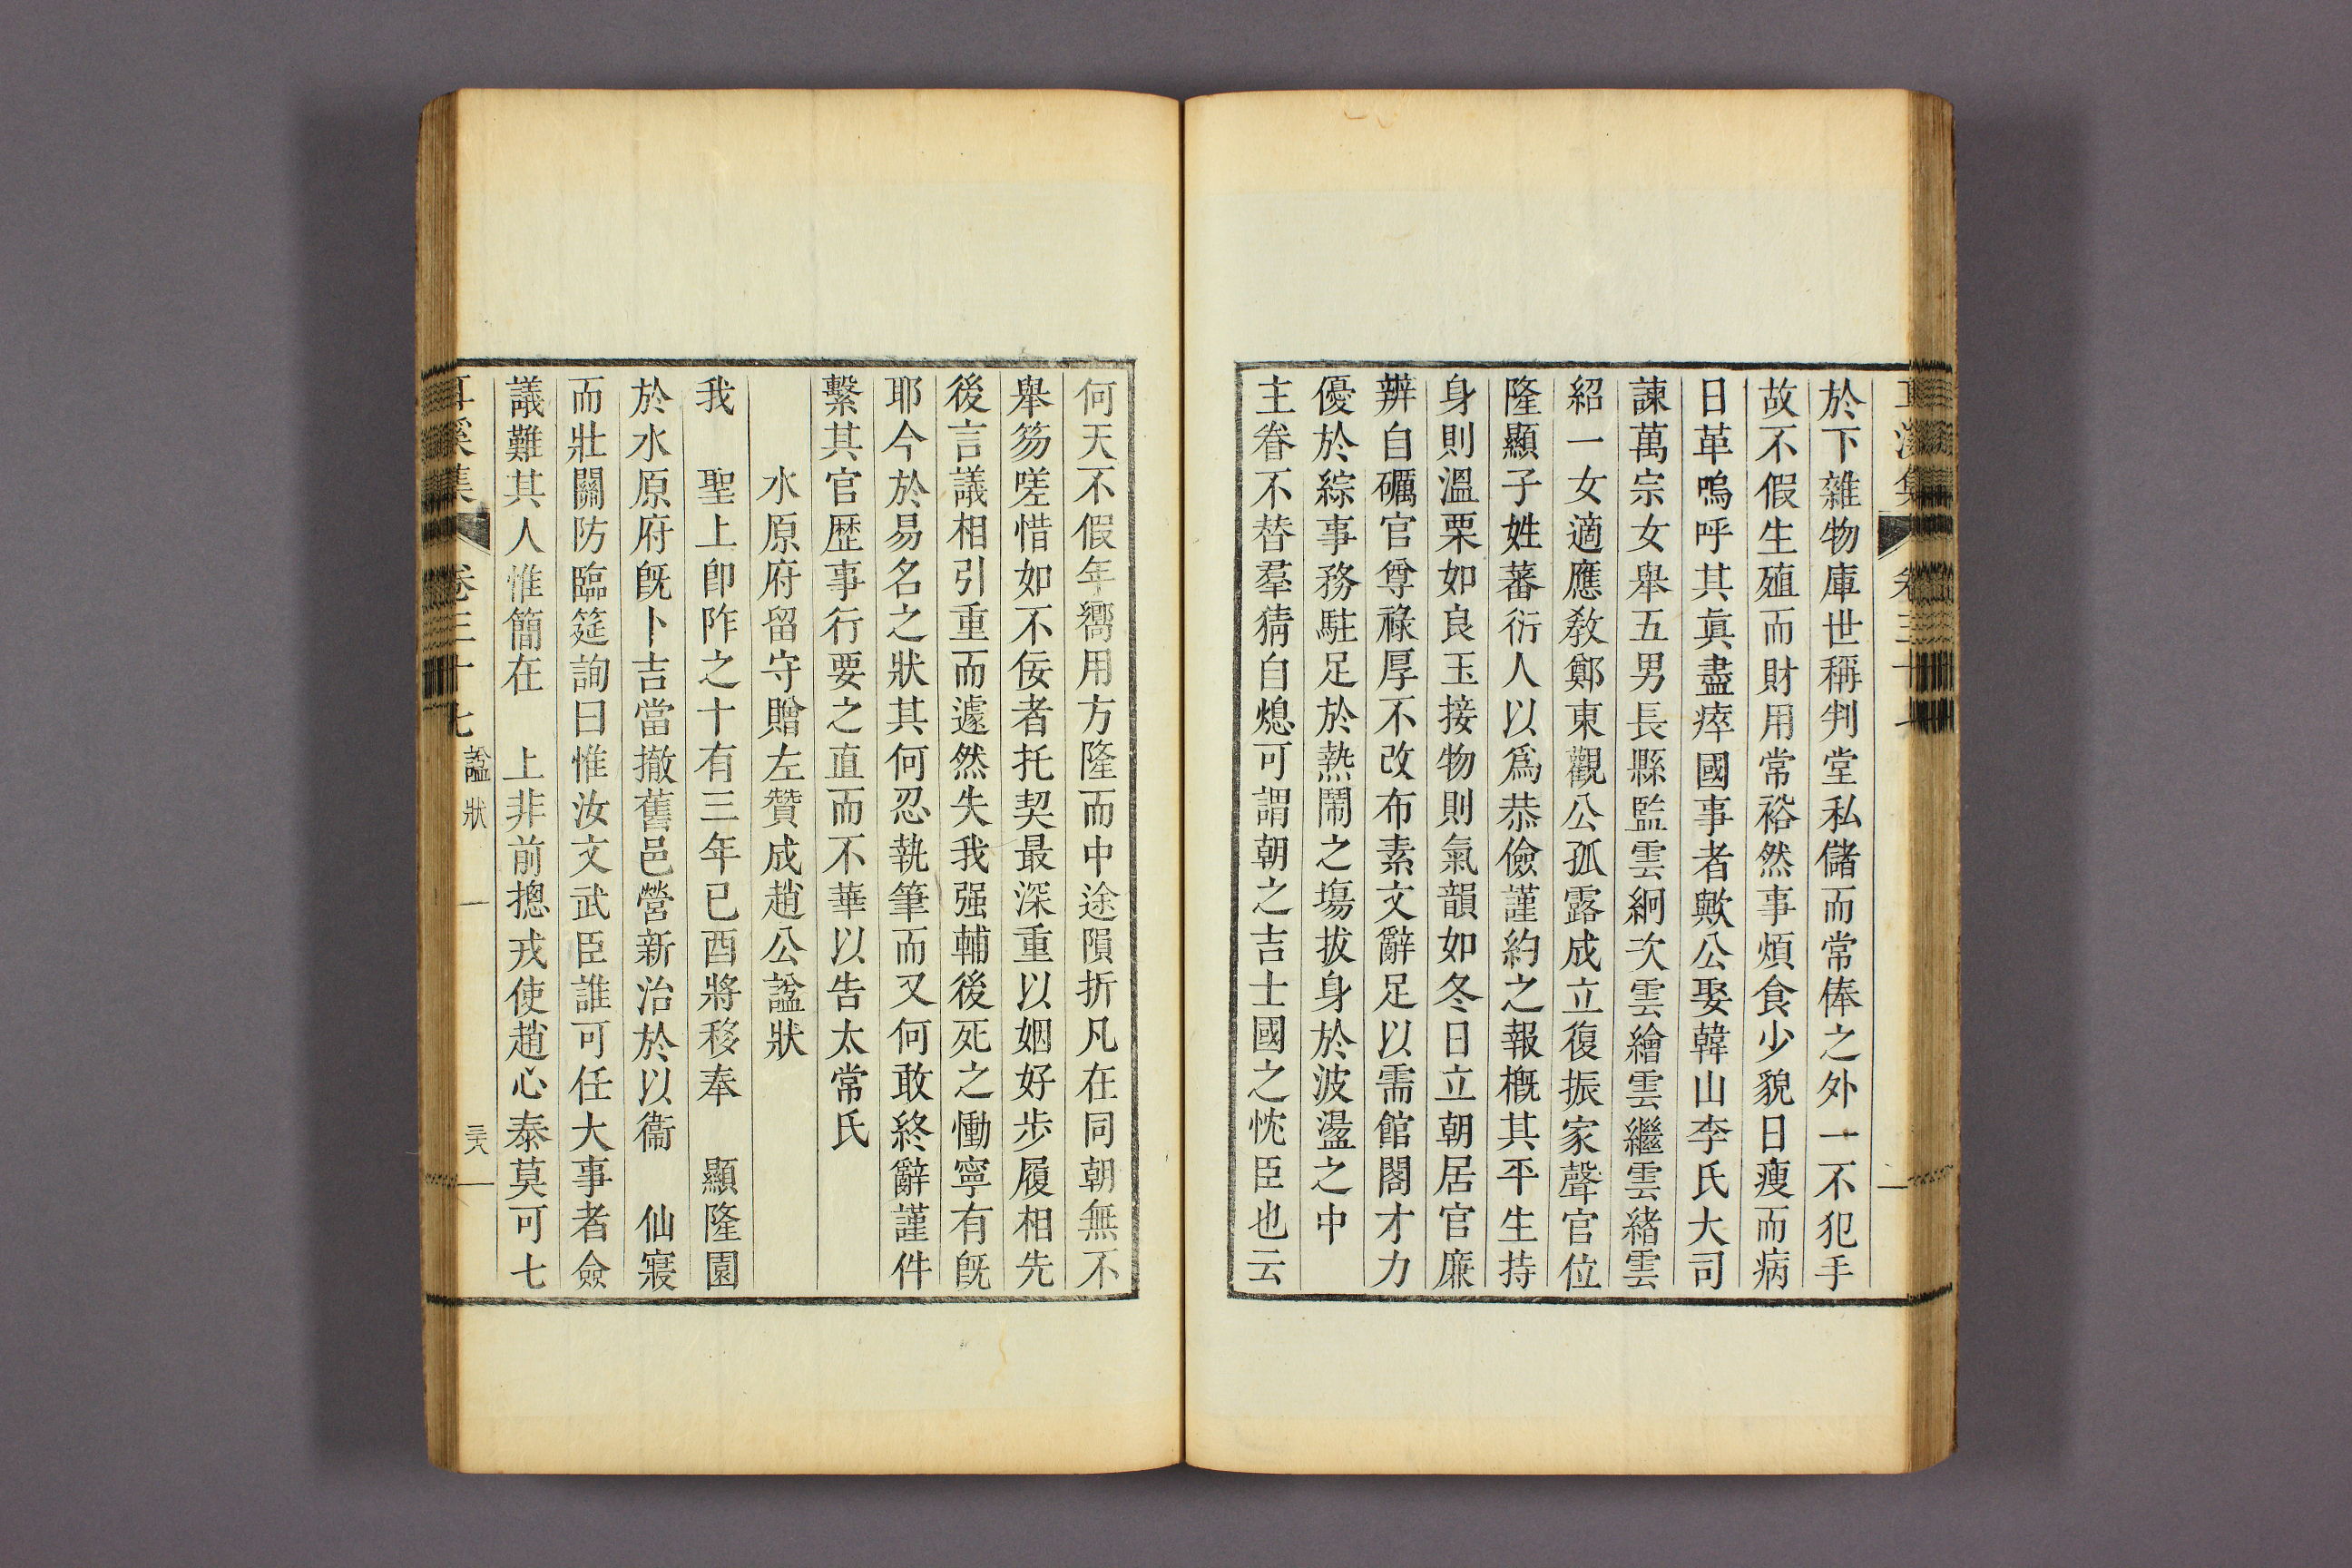 於下雜物庫世稱判堂私儲而常俸之外一不犯手
故不假生殖而財用常裕然事煩食少貌日瘦而病
日革嗚呼其眞盡瘁國事者歟公娶韓山李氏大司
諫萬宗女舉五男長縣監雲絅次雲繪雲繼雲緖雲
紹一女適應敎鄭東觀公孤露成立復振家聲官位
隆顯子姓蕃衍人以爲恭儉謹約之報槪其平生持
身則溫栗如良玉接物則氣韻如冬日立朝居官廉
辦自礪官尊祿厚不改布素文辭足以需館閣才力
優於綜事務駐足於熱鬧之塲拔身於波盪之中
主眷不替羣猜自熄可謂朝之吉士國之忱臣也云
何天不假年嚮用方隆而中途隕折凡在同朝無不
舉笏嗟惜如不佞者托契最深重以姻好步履相先
後言議相引重而遽然失我强輔後死之慟寧有旣
耶今於易名之狀其何忍執筆而又何敢終辭謹件
繫其官歷事行要之直而不華以告太常氏
水原府留守贈左贊成趙公諡狀
我 聖上卽阼之十有三年已酉將移奉 顯隆園
於水原府旣卜吉當撤舊邑營新治於以衞 仙寢
而壯關防臨筵詢曰惟汝文武臣誰可任大事者僉
議難其人惟簡在 上非前摠戎使趙心泰莫可七
耳溪集 卷三十七 諡狀 三六